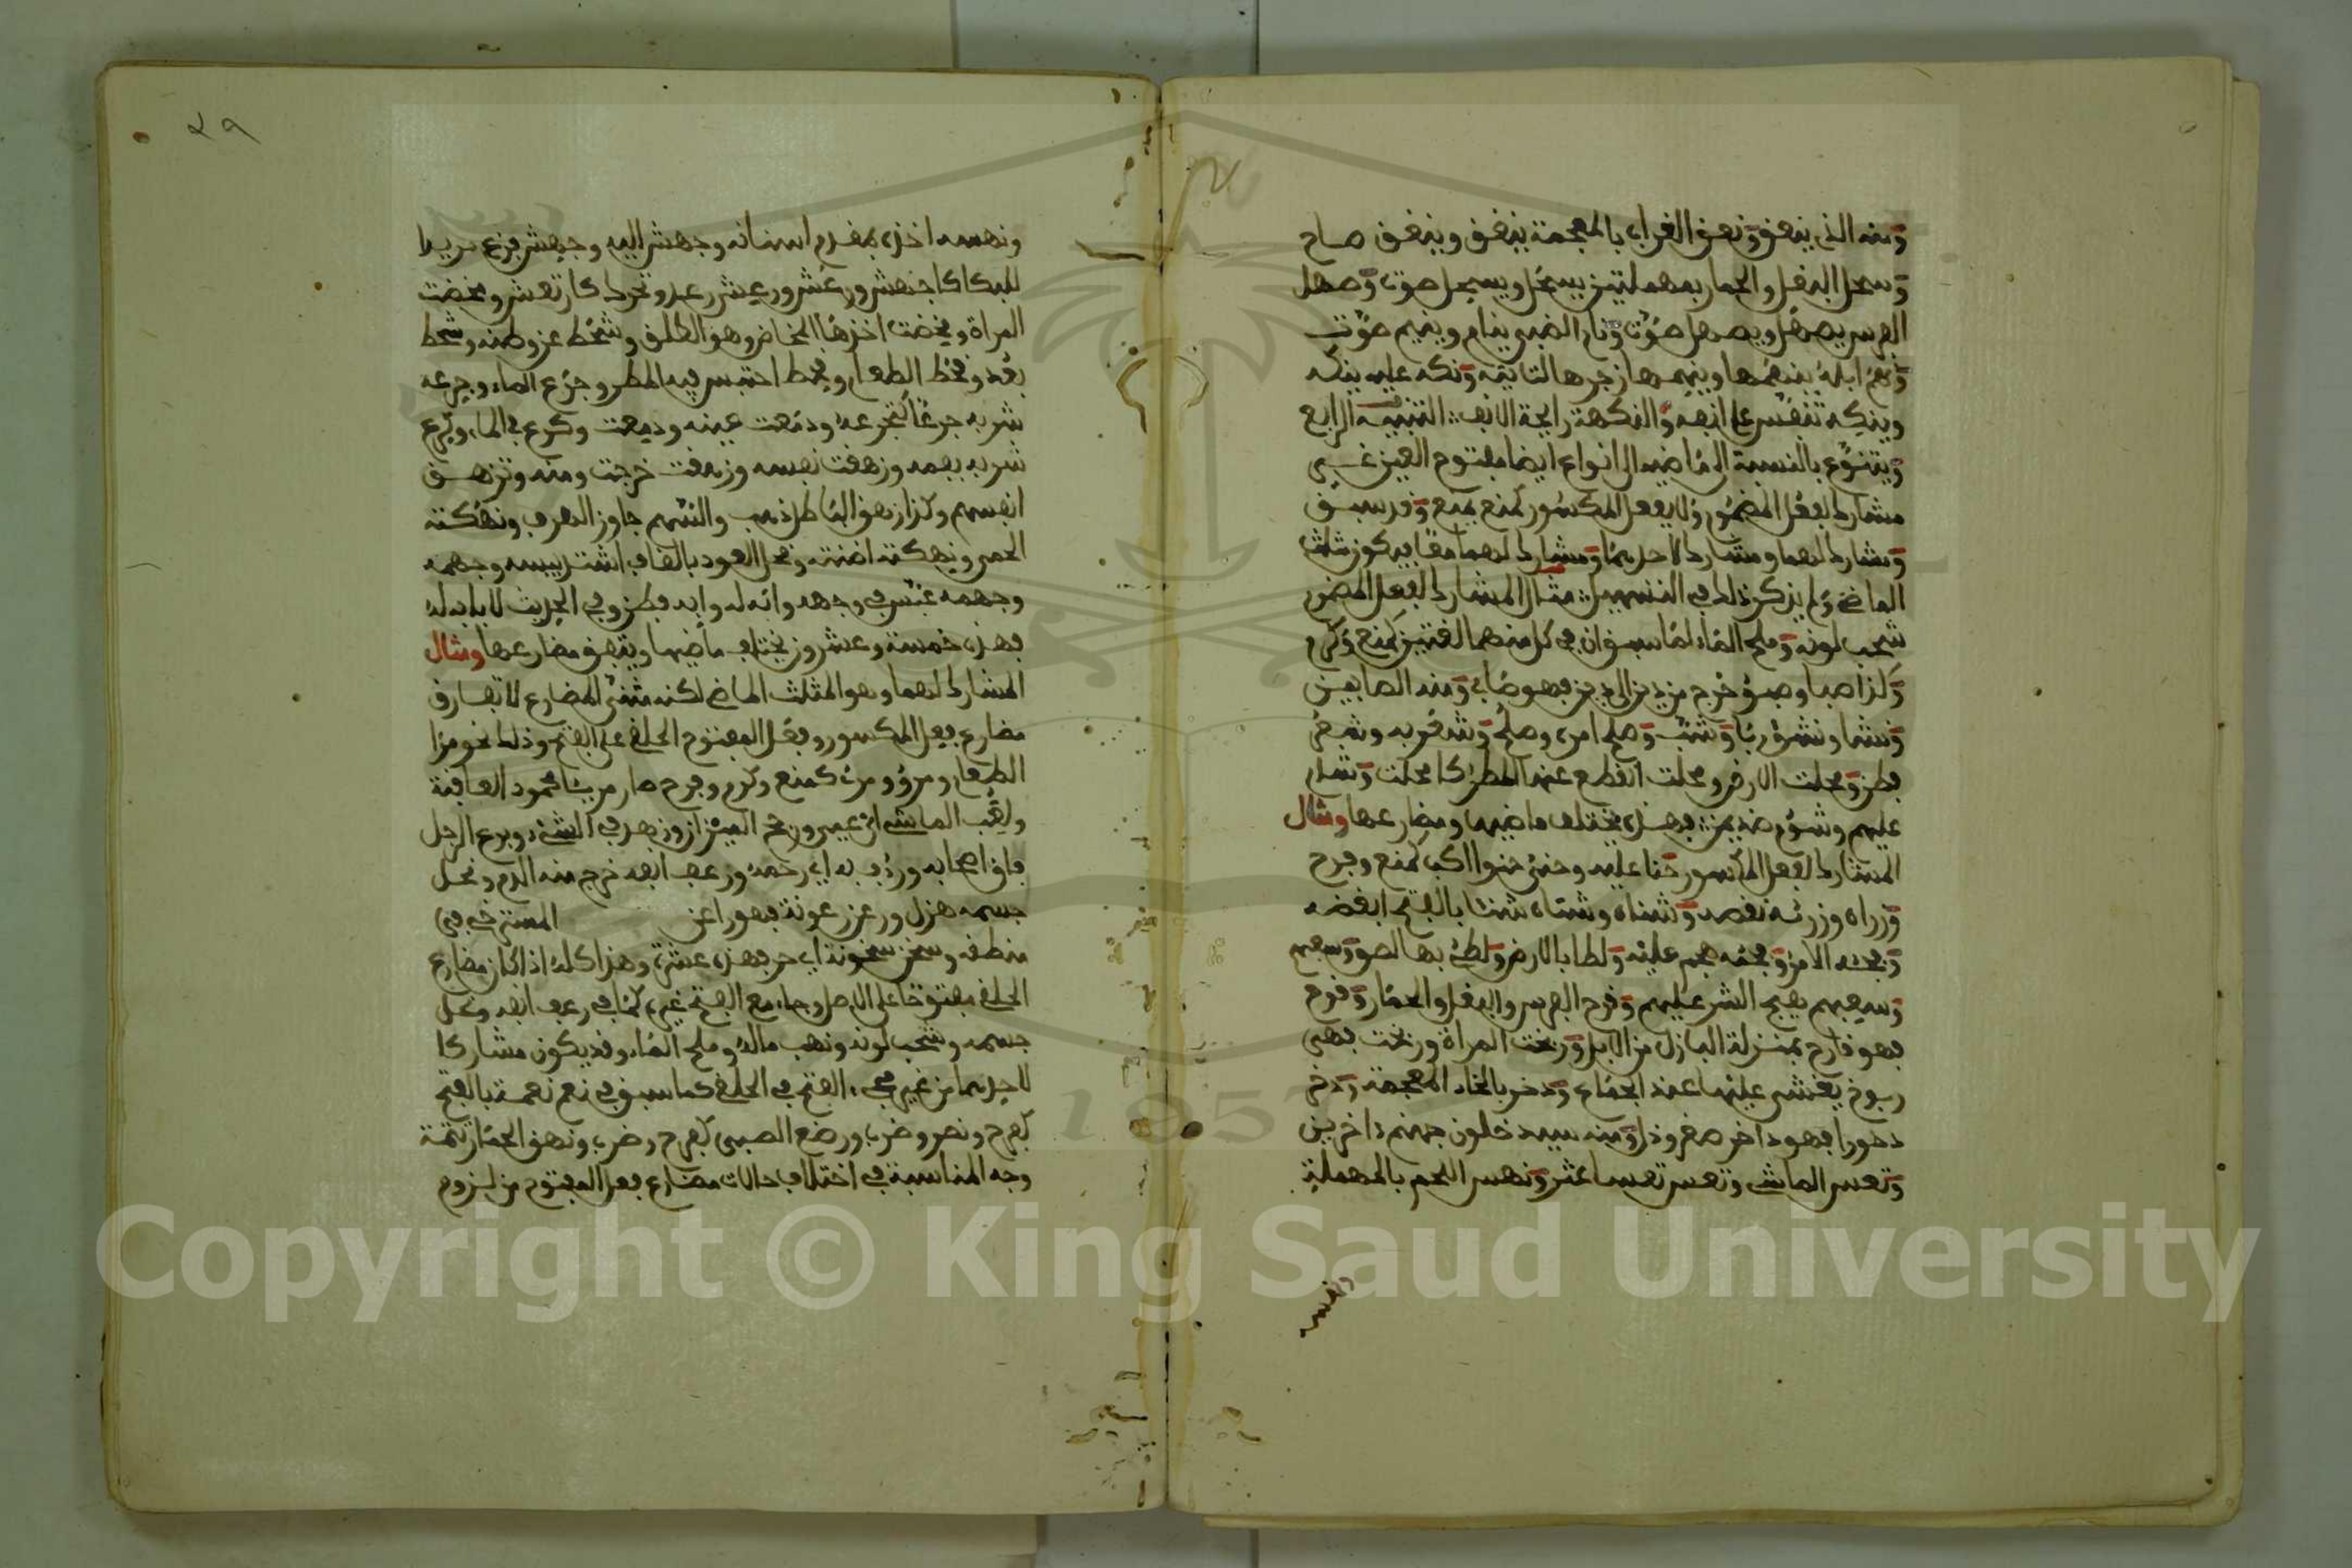 ومنه الذي ينعق ونغق الغراب بالمعجمة ينغق وينغق صاح
وسحل البغل والحمار بمهملتين يسحل ويسحل صوت وصهل
الفرس يصهل ويصهل صوت ونام الضبي ينام وينيم صوت
ونهم ابله ينهمها وينهمها زجرها لتا ونكه عليه ينكه
وينكه تنفس على انفه والنكهة رايحة الانف التنبيه الرابع
ويتنوع بالنسبة الى ماضيه الى انواع ايضا مفتوح العين غير
مشارك لفعل المضموم ولا بفعل المكسور كمنع يمنع وقد سبق
ومشارك لهما ومشارك لاحدهما ومشارك لهما معا فيكون مثلث
الماضي ولم يذكر ذلك في التسهيل مثال المشارك لفعل المضموم
شحب لونه وملح الماء لما سبق ان في كل منهما الفتين كمنع وكرم
وكذا صبا وصبؤ خرج من دين الى دين فهو صابي ومنه الصابين
ونشا ونشؤ ربا وشب وصلح امره وصلح وشقر به وشقر
فطن ومحلت الارض ومحلت انقطع عنها المطر كامحلت وشام
عليهم وشؤم ضد يمن فهذه يختلف ماضيها ومضارعها ومثال
المشارك لفعل المكسور حنا عليه وحنى حنوا اكب كمنع وفرح
وزراه وزرئه نقصه وشناه وشناه شنئا بالفتح ابغضه
وفجئه الامر وفجئه هجم عليه ولطا بالارض ولطئ بها لصق وسعهم
وسعهم يهيج الشر عليهم وقرح الفرس والبغل والحمار وقرح
فهو قارح بمنزلة البازل من الابل وربخت المراة وربخت فهي
ربوخ يغشى عليها عند الجماع ودخر بالخاء المعجمة ودخر
دخورا فهو داخر صغر وذل ومنه سيدخلون جهنم داخرين
وتعس الماشي وتعس تعسا عثر ونهس اللحم بالمهملة
ونهسه
ونهسه اخذه بمقدم اسنانه وجهش اليه وجهش فزع مريدا
للبكا كاجهش ورعش ورعش رعدة وتحرك كارتعش ومخضت
المراة ومخضت اخذها المخاض وهو الطلق وشحط عن وطنه وشحط
بعد وقحط الطعام وقحط احتبس فيه المطر وجرع الماء وجرعه
شربه جرعا كتجرعه ودمعت عينه ودمعت وكرع في الماء وكرع
شربه بفمه وزهقت نفسه وزهقت خرجت ومنه وتزهق
انفسهم وكذا زهق الباطل ذهب والسهم جاوز الهدف ونهكته
الحمى ونهكته اضنته وقحل العود بالقاف اشتد يبسه وجهمه
وجهمه عبس في وجهه وابه له وابه فطن وفي الحديث لا يابه له
فهذه خمسة وعشرون يختلف ماضيها ويتفق مضارعها ومثال
المشارك لهما وهو المثلث الماضي لكنه مثنى المضارع لاتفاق
مضارع فعل المكسور وفعل المفتوح الحلقي على الفتح وذلك نحو مرا
الطعام ومرؤ ومرئ كمنع وكرم وفرح صار مريئا محمود العاقبة
ولغب الماشي اي عيي وزهد في الشيء وبرع الرجل
فاق اصحابه ورئف به اي رحمه ورعف انفه خرج منه الدم ونحل
جسمه هزل ورعن رعونة فهو ارعن المسترخي في
منطقه وسخن سخونة اي حر فهذه عشرة وهذا كله اذا كان مضارع
الحلقي مفتوحا على الاصل وجاء مع الفتح غيره كما في رعف انفه ونحل
جسمه وشحب لونه ونهب ماله وملح الماء وقد يكون مشاركا
لاحدهما من غير مجيء الفتح في الحلقي كما سبق في نعم نعمة بالفتح
كفرح ونصر وضرب ورضع الصبي كفرح وضرب ونهق الحمار تتمة
وجه المناسبة في اختلاف حالات مضارع فعل المفتوح من لزوم
٢٩
1957
Copyright © King Saud University